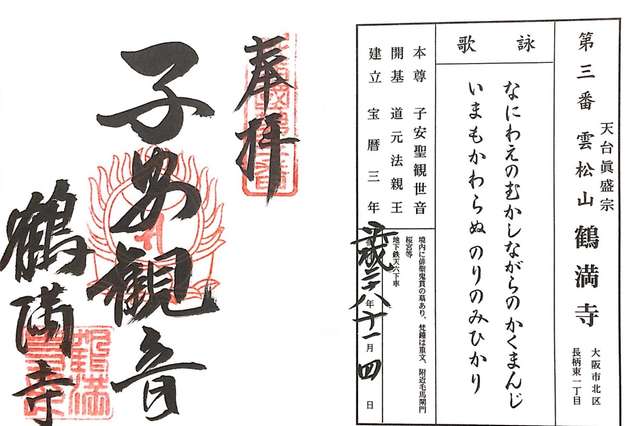 第三番
天台眞盛宗
雲松山 鶴満寺
大阪市北区
長柄東一丁目
詠歌
なにわえのむかしながらのかくまんじ
いまもかわらぬのりのみひかり
本尊 子安聖観世音
開基 道元法親王
建立 宝暦三年
境内に俳聖鬼貫の墓あり、梵鐘は重文、附近毛馬閘門
桜宮等
地下鉄天六下車
平成二八年十一月四日
奉拝
子安観音
鶴満寺
鶴満